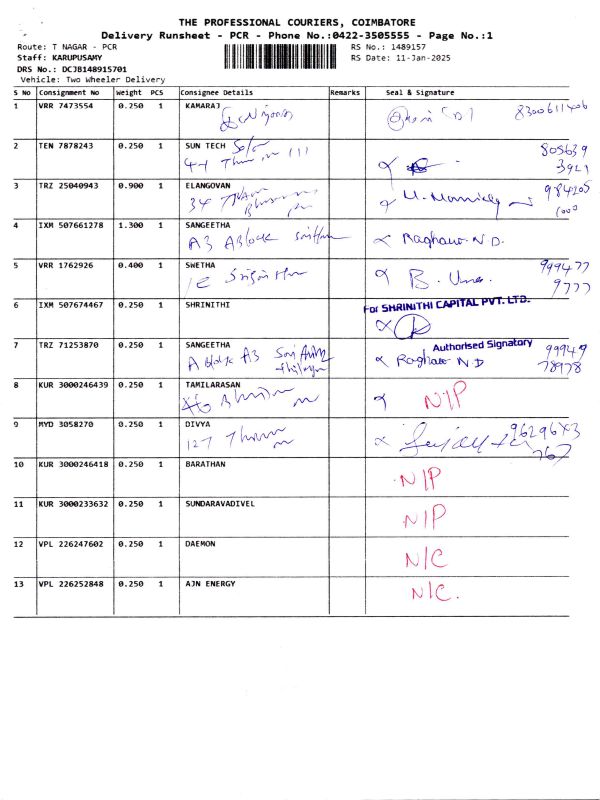 THE PROFESSIONAL COURIERS, COIMBATORE
Delivery Runsheet - PCR - Phone No.:0422-3505555 - Page No.:1
Route: T NAGAR - PCR RS No.: 1489157
Staff: KARUPUSAMY RS Date: 11-Jan-2025
DRS No.: DCJB148915701
Vehicle: Two Wheeler Delivery
S No Consignment No Weight PCS Consignee Details Remarks Seal & Signature
1 VRR 7473554 0.250 1 KAMARAJ 8300611406
2 TEN 7878243 0.250 1 SUN TECH 805639
3921
3 TRZ 25040943 0.900 1 ELANGOVAN
34
4 IXM 507661278 1.300 1 SANGEETHA
A3 ABlock Raghav. N.D.
5 VRR 1762926 0.400 1 SWETHA 999477
9777
6 IXM 507674467 0.250 1 SHRINITHI For SHRINITHI CAPITAL PVT. LTD.
Authorised Signatory
7 TRZ 71253870 0.250 1 SANGEETHA 99949
A Block A3 Raghav N.D 78978
8 KUR 3000246439 0.250 1 TAMILARASAN N/P
9 MYD 3058270 0.250 1 DIVYA
127
10 KUR 3000246418 0.250 1 BARATHAN N/P
11 KUR 3000233632 0.250 1 SUNDARAVADIVEL N/P
12 VPL 226247602 0.250 1 DAEMON N/C
13 VPL 226252848 0.250 1 AJN ENERGY N/C.